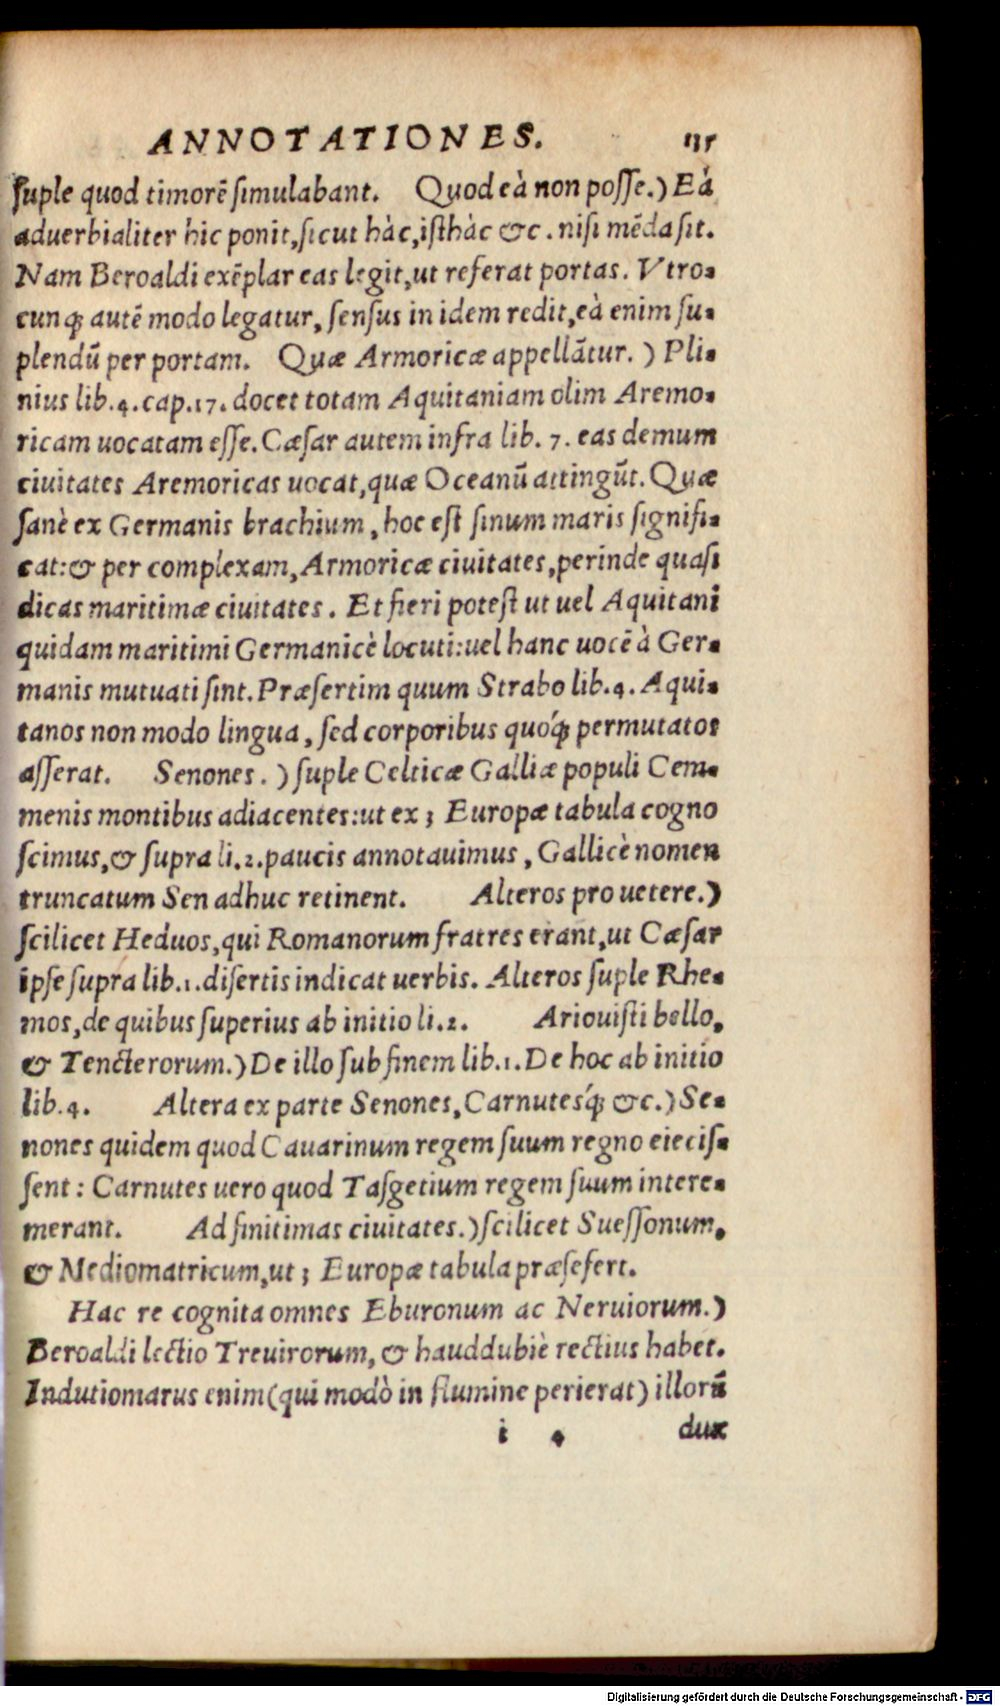 ANNOTATIONES. 135
suple quod timorē simulabant. Quod eà non posse.) Eà
aduerbialiter hic ponit, sicut hàc, isthàc &c. nisi mēda sit.
Nam Beroaldi exēplar eas legit, ut referat portas. Vtro-
cunq; autē modo legatur, sensus in idem redit, eà enim su-
plendū per portam. Quæ Armoricæ appellātur. ) Pli-
nius lib. 4. cap. 17. docet totam Aquitaniam olim Aremo-
ricam uocatam esse. Cæsar autem infra lib. 7. eas demum
ciuitates Aremoricas uocat, quæ Oceanū attingūt. Quæ
sanè ex Germanis brachium, hoc est sinum maris signifi-
cat: & per complexam, Armoricæ ciuitates, perinde quasi
dicas maritimæ ciuitates. Et fieri potest ut uel Aquitani
quidam maritimi Germanicè locuti: uel hanc uocē à Ger-
manis mutuati sint. Præsertim quum Strabo lib. 4. Aqui-
tanos non modo lingua, sed corporibus quóq; permutatos
asserat. Senones. ) suple Celticæ Galliæ populi Cem-
menis montibus adiacentes: ut ex 3 Europæ tabula cogno
scimus, & supra li. 2. paucis annotauimus, Gallicè nomen
truncatum Sen adhuc retinent. Alteros pro uetere.)
scilicet Heduos, qui Romanorum fratres erant, ut Cæsar
ipse supra lib. 1. disertis indicat uerbis. Alteros suple Rhe-
mos, de quibus superius ab initio li. 2. Ariouisti bello,
& Tencterorum.) De illo sub finem lib. 1. De hoc ab initio
lib. 4. Altera ex parte Senones, Carnutesq́; &c.) Se-
nones quidem quod Cauarinum regem suum regno eiecis-
sent: Carnutes uero quod Tasgetium regem suum intere-
merant. Ad finitimas ciuitates.) scilicet Suessonum,
& Mediomatricum, ut 3 Europæ tabula præsefert.
Hac re cognita omnes Eburonum ac Neruiorum.)
Beroaldi lectio Treuirorum, & hauddubiè rectius habet.
Indutiomarus enim (qui modò in flumine perierat) illorū
i 4 dux
Digitalisierung gefördert durch die Deutsche Forschungsgemeinschaft - DFG